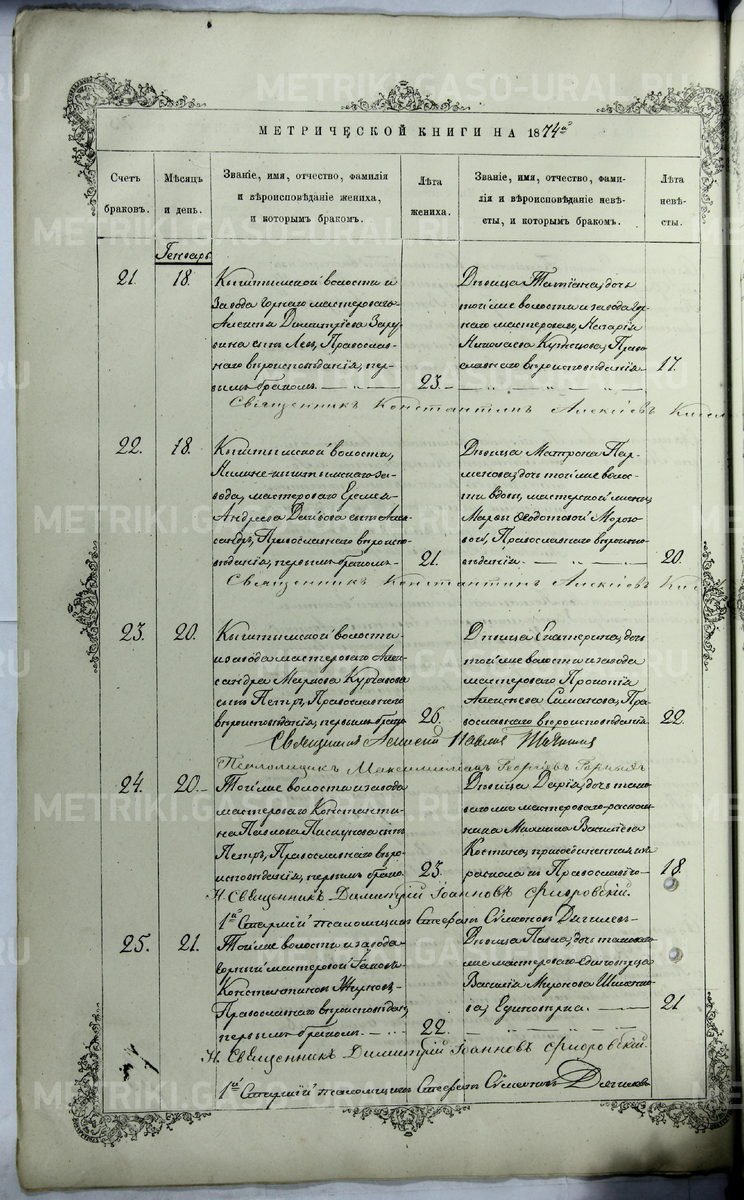 METRIKI.GASO-URAL.RU
МЕТРИЧЕСКОЙ КНИГИ НА 1874й
Счетъ браковъ.
Мѣсяцъ и день.
Званіе, имя, отчество, фамилія
и вѣроисповѣданіе жениха,
и которымъ бракомъ.
Лѣта жениха.
Званіе, имя, отчество, фами-
лія и вѣроисповѣданіе невѣ-
сты, и которымъ бракомъ.
Лѣта невѣ-
сты.
Генварь
21.
18.
Кыштымской волости и
Завода горнаго мастероваго
Алексѣя Димитріева Зару-
бина сынъ Левъ, Православ-
наго вѣроисповѣданія, пер-
вымъ бракомъ.
23.
Дѣвица Татіана, дочь
той же волости и завода гор-
наго мастероваго, Назарія
Николаева Кузнецова, Право-
славнаго вѣроисповѣданія
17.
Священникъ Константинъ Алексѣевъ
22.
18.
Кыштымской волости,
Нижне-кыштымскаго за-
вода, мастероваго Еремея
Андреева Сынъ Алек-
сандръ, Православнаго вѣроиспо-
вѣданія, первымъ бракомъ.
21.
Дѣвица Матрона Пар-
менова, дочь той же волос-
ти вдовы, мастерской жены,
Марѳы Ѳедотовой Моро-
вой, Православнаго вѣроиспо-
вѣданія.
20.
Священникъ Константинъ Алексѣевъ
23.
20.
Кыштымской волости
и завода мастероваго Алек-
сандра Маркова
сынъ Петръ, Православнаго
вѣроисповѣданія, первымъ брако
26.
Дѣвица Екатерина, дочь
той же волости и завода
мастероваго Прокопія
Алексѣева Симакова, Пра-
вославнаго вѣроисповѣданія
22.
Священникъ Алексій Павловъ
Псаломщикъ Максимиліанъ Георгіевъ
24.
20.
Той же волости и завода
мастероваго Константи-
на Павлова Пискунова сынъ
Петръ, Православнаго вѣро-
исповѣданія, первымъ брако
23.
Дѣвица Дарія, дочь тако-
ваго же мастероваго-расколь-
ника Василіева
Костина, присоединенная изъ
раскола къ Православію
18.
И. Священникъ Димитрій Іоанновъ Флоровскій.
1й Старшій псаломщикъ Стефанъ Сѵмеоновъ Дягилевъ
25.
21.
Той же волости и завода
горный мастеровой Іаковъ
Константиновъ
Православнаго вѣроисповѣдан,
первымъ бракомъ.
22.
Дѣвица Павла, дочь таковаго
же мастероваго Единовѣрца
Василія Миронова
ва, Единовѣрка.
21
И. Священникъ Димитрій Іоанновъ Флоровскій.
1й Старшій псаломщикъ Стефанъ Сѵмеоновъ Дягилевъ